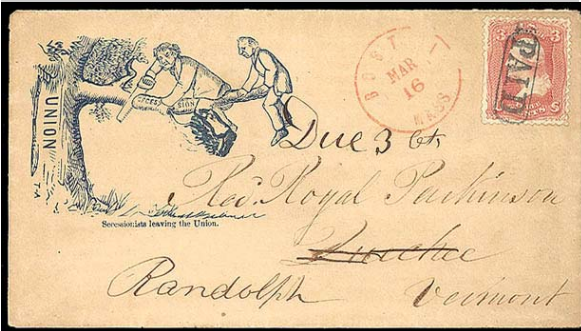 UNION
SECES
SION
Secessionists leaving the Union.
BOST
MAR
16
MASS
3 3
PAID
CENTS
Due 3 Cts.
Rev. Royal Parkinson
Quechee
Randolph Vermont